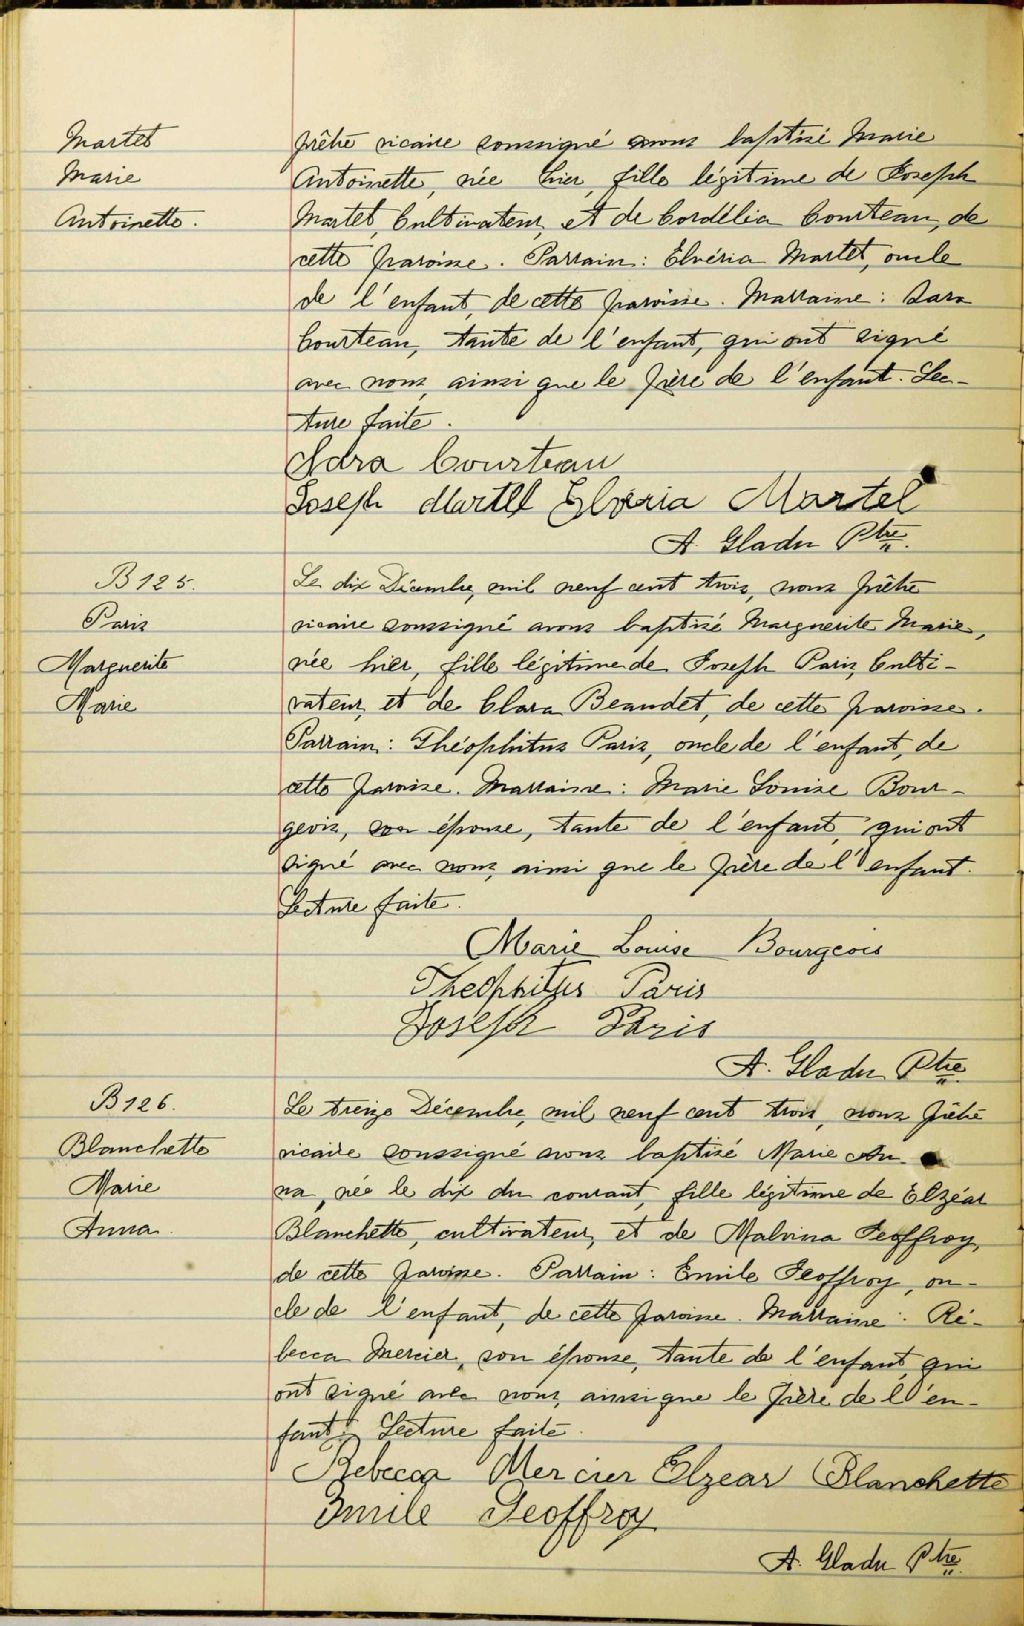 Martel
Marie
Antoinette.
prêtre vicaire soussigné avons baptisé Marie
Antoinette, née hier, fille légitime de Joseph
Martel, Cultivateur, et de Cordélia Courteau, de
cette paroisse. Parrain: Elvéria Martel, oncle
de l'enfant, de cette paroisse. Marraine: Sara
Courteau, tante de l'enfant, qui ont signé
avec nous, ainsi que le père de l'enfant. Lec-
ture faite.
Sara Courteau
Joseph Martel Elvéria Martel
A. Gladu Ptre.
B 125.
Paris
Marguerite
Marie
Le dix Décembre, mil neuf cent trois, nous prêtre
vicaire soussigné avons baptisé Marguerite Marie,
née hier, fille légitime de Joseph Paris, Culti-
vateur, et de Clara Beaudet, de cette paroisse.
Parrain: Théophitus Paris, oncle de l'enfant, de
cette paroisse. Marraine: Marie Louise Bour-
geois, son épouse, tante de l'enfant, qui ont
signé avec nous, ainsi que le père de l'enfant.
Lecture faite.
Marie Louise Bourgeois
Theophitus Paris
Joseph Paris
A. Gladu Ptre.
B 126.
Blanchette
Marie
Anna.
Le treize Décembre, mil neuf cent trois, nous prêtre
vicaire soussigné avons baptisé Marie An-
na, née le dix du courant, fille légitime de Elzéar
Blanchette, cultivateur, et de Malvina Geoffroy,
de cette paroisse. Parrain: Emile Geoffroy, on-
cle de l'enfant, de cette paroisse. Marraine: Ré-
becca Mercier, son épouse, tante de l'enfant, qui
ont signé avec nous, ainsi que le père de l'en-
fant. Lecture faite.
Rebecca Mercier Elzear Blanchette
Emile Geoffroy
A. Gladu Ptre.